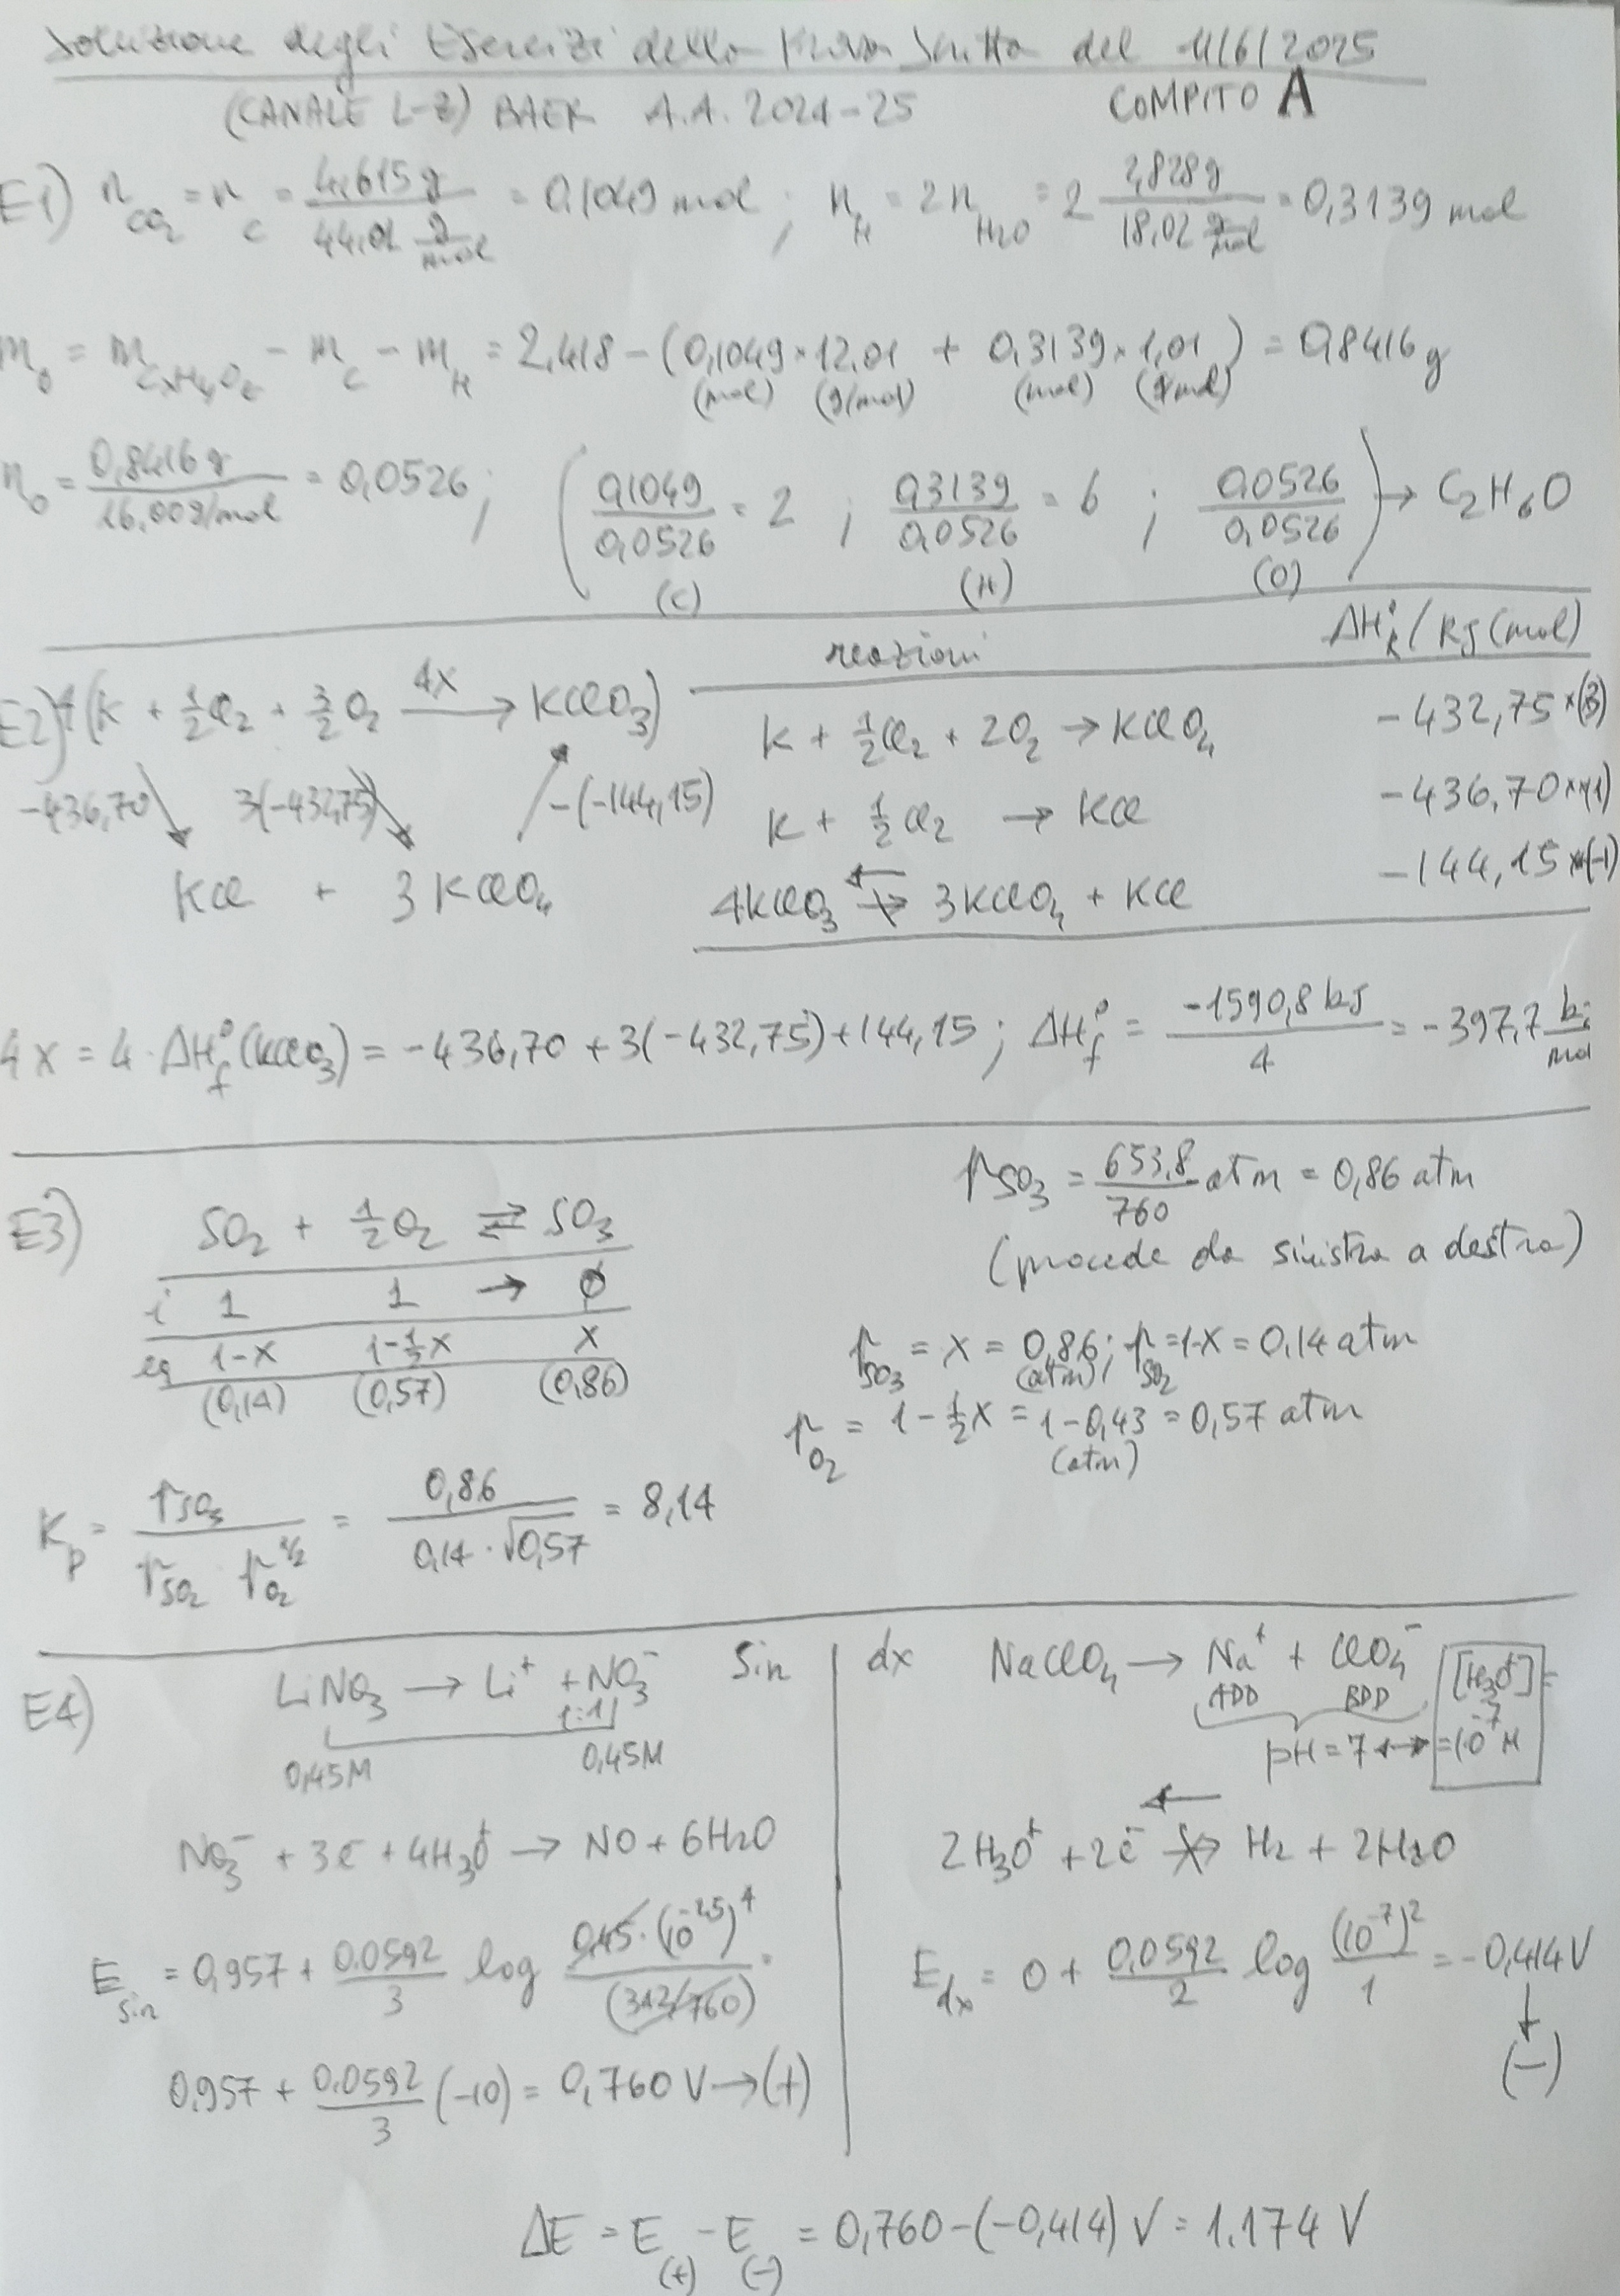 Soluzione degli Esercizi della Prova Scritta del 11/6/2025
(CANALE L-Z) BAER A.A. 2024-25 COMPITO A
E1) n_CO2 = n_C = 4,615 g / 44,01 g/mol = 0,1049 mol ; n_H = 2 n_H2O = 2 2,828 g / 18,02 g/mol = 0,3139 mol
m_O = m_CxHyOz - m_C - m_H = 2,418 - (0,1049 × 12,01 + 0,3139 × 1,01) = 0,8416 g
(mol) (g/mol) (mol) (g/mol)
n_O = 0,8416 g / 16,00 g/mol = 0,0526 ; ( 0,1049 / 0,0526 = 2 ; 0,3139 / 0,0526 = 6 ; 0,0526 / 0,0526 ) → C2H6O
(C) (H) (O)
reazioni ΔH°R / kJ (mol)
E2) 4(K + 1/2 Cl2 + 3/2 O2 4x → KClO3)
K + 1/2 Cl2 + 2O2 → KClO4 -432,75 ×(3)
-436,70 3(-432,75) -(-144,15)
K + 1/2 Cl2 → KCl -436,70 ×(1)
KCl + 3 KClO4
4KClO3 ← → 3KClO4 + KCl -144,15 ×(-1)
4x = 4 · ΔH°f (KClO3) = -436,70 + 3(-432,75) + 144,15 ; ΔH°f = -1590,8 kJ / 4 = -397,7 kJ/mol
p_SO3 = 653,8 / 760 atm = 0,86 atm
E3) SO2 + 1/2 O2 ⇌ SO3
(procede da sinistra a destra)
i 1 1 → ∅
eq 1-x 1-1/2x x
(0,14) (0,57) (0,86)
p_SO3 = x = 0,86 (atm) ; p_SO2 = 1-x = 0,14 atm
p_O2 = 1 - 1/2x = 1 - 0,43 = 0,57 atm
(atm)
Kp = p_SO3 / p_SO2 · p_O2^1/2 = 0,86 / 0,14 · √0,57 = 8,14
E4) LiNO3 → Li+ + NO3- Sin
1:1
0,45M 0,45M
NO3- + 3e- + 4H3O+ → NO + 6H2O
E_sin = 0,957 + 0.0592 / 3 log 0,45 · (10^-2,5)^4 / (343/760) =
0,957 + 0.0592 / 3 (-10) = 0,760 V → (+)
dx NaClO4 → Na+ + ClO4-
ADD BDD
pH = 7 ↔ [H3O+] = = 10^-7 M
←
2H3O+ + 2e- → H2 + 2H2O
E_dx = 0 + 0,0592 / 2 log (10^-7)^2 / 1 = -0,414 V
(-)
ΔE = E(+) - E(-) = 0,760 - (-0,414) V = 1.174 V